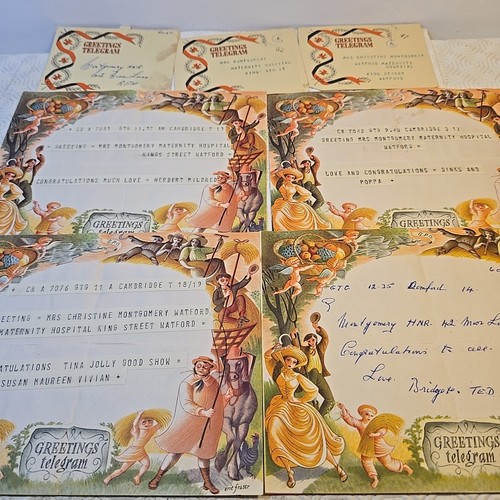 GREETINGS
TELEGRAM
Montgomery HNR
GREETINGS
TELEGRAM
MRS MONTGOMERY
GREETINGS
TELEGRAM
MRS CHRISTINE MONTGOMERY
WATFORD MATERNITY
HOSPITAL
KING STREET
WATFORD
CAMBRIDGE T
GREETING = MRS MONTGOMERY MATERNITY HOSPITAL
KINGS STREET WATFORD =
CONGRATULATIONS MUCH LOVE = HERBERT MILDRED
GREETINGS
telegram
CAMBRIDGE T 12
GREETING MRS MONTGOMERY MATERNITY HOSPITAL
WATFORD =
LOVE AND CONGRATULATIONS = DINKS AND
POPPA +
GREETINGS
CB A 7076 GTG 11 A CAMBRIDGE T 18/19
EETING = MRS CHRISTINE MONTGOMERY WATFORD
MATERNITY HOSPITAL KING STREET WATFORD =
ATULATIONS TINA JOLLY GOOD SHOW =
SUSAN MAUREEN VIVIAN +
GREETINGS
telegram
eric fraser
GTG 12-35 14.
Montgomery HNR. 42 Moor L
Congratulations to all.
Love.
Bridget.
GREETINGS
telegram